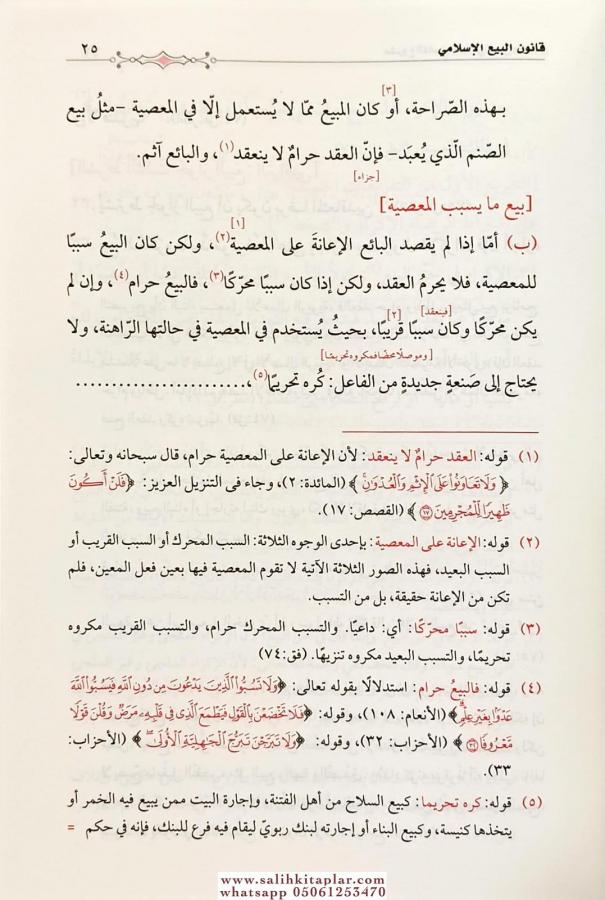 قانون البيع الإسلامي ٢٥
[٣]
بهذه الصّراحة، أو كان المبيعُ ممّا لا يُستعمل إلّا في المعصية -مثلُ بيع
الصّنم الّذي يُعبَد- فإنّ العقد حرامٌ لا ينعقد(١)، والبائع آثم.
[جزاء]
[بيع ما يسبب المعصية]
[١]
(ب) أمّا إذا لم يقصد البائع الإعانةَ على المعصية(٢)، ولكن كان البيعُ سببًا
للمعصية، فلا يحرمُ العقد، ولكن إذا كان سببًا محرّكًا(٣)، فالبيعُ حرام(٤)، وإن لم
[فينعقد] [٢]
يكن محرّكًا وكان سببًا قريبًا، بحيثُ يُستخدم في المعصية في حالتها الرّاهنة، ولا
[وموصلًا محضًا فمكروه تحريمًا]
يحتاج إلى صَنعةٍ جديدةٍ من الفاعل: كُره تحريمًا(٥)،......................
(١) قوله: العقد حرامٌ لا ينعقد: لأن الإعانة على المعصية حرام، قال سبحانه وتعالى:
﴿وَلَا تَعَاوَنُوا۟ عَلَى ٱلْإِثْمِ وَٱلْعُدْوَٰنِ﴾ (المائدة: ٢)، وجاء فى التنزيل العزيز: ﴿فَلَنْ أَكُونَ
ظَهِيرًا لِّلْمُجْرِمِينَ ١٧﴾ (القصص: ١٧).
(٢) قوله: الإعانة على المعصية: بإحدى الوجوه الثلاثة: السبب المحرك أو السبب القريب أو
السبب البعيد، فهذه الصور الثلاثة الآتية لا تقوم المعصية فيها بعين فعل المعين، فلم
تكن من الإعانة حقيقة، بل من التسبب.
(٣) قوله: سببًا محرّكًا: أي: داعيًا. والتسبب المحرك حرام، والتسبب القريب مكروه
تحريمًا، والتسبب البعيد مكروه تنزيهًا. (فق:٧٤)
(٤) قوله: فالبيعُ حرام: استدلالًا بقوله تعالى: ﴿وَلَا تَسُبُّوا۟ ٱلَّذِينَ يَدْعُونَ مِن دُونِ ٱللَّهِ فَيَسُبُّوا۟ ٱللَّهَ
عَدْوًۢا بِغَيْرِ عِلْمٍ﴾ (الأنعام: ١٠٨)، وقوله: ﴿فَلَا تَخْضَعْنَ بِٱلْقَوْلِ فَيَطْمَعَ ٱلَّذِى فِى قَلْبِهِۦ مَرَضٌ وَقُلْنَ قَوْلًا
مَّعْرُوفًا ٣٢﴾ (الأحزاب: ٣٢)، وقوله: ﴿وَلَا تَبَرَّجْنَ تَبَرُّجَ ٱلْجَٰهِلِيَّةِ ٱلْأُولَىٰ﴾ (الأحزاب:
٣٣).
(٥) قوله: كره تحريما: كبيع السلاح من أهل الفتنة، وإجارة البيت ممن يبيع فيه الخمر أو
يتخذها كنيسة، وكبيع البناء أو إجارته لبنك ربويّ ليقام فيه فرع للبنك، فإنه في حكم =
www.salihkitaplar.com
whatsapp 05061253470